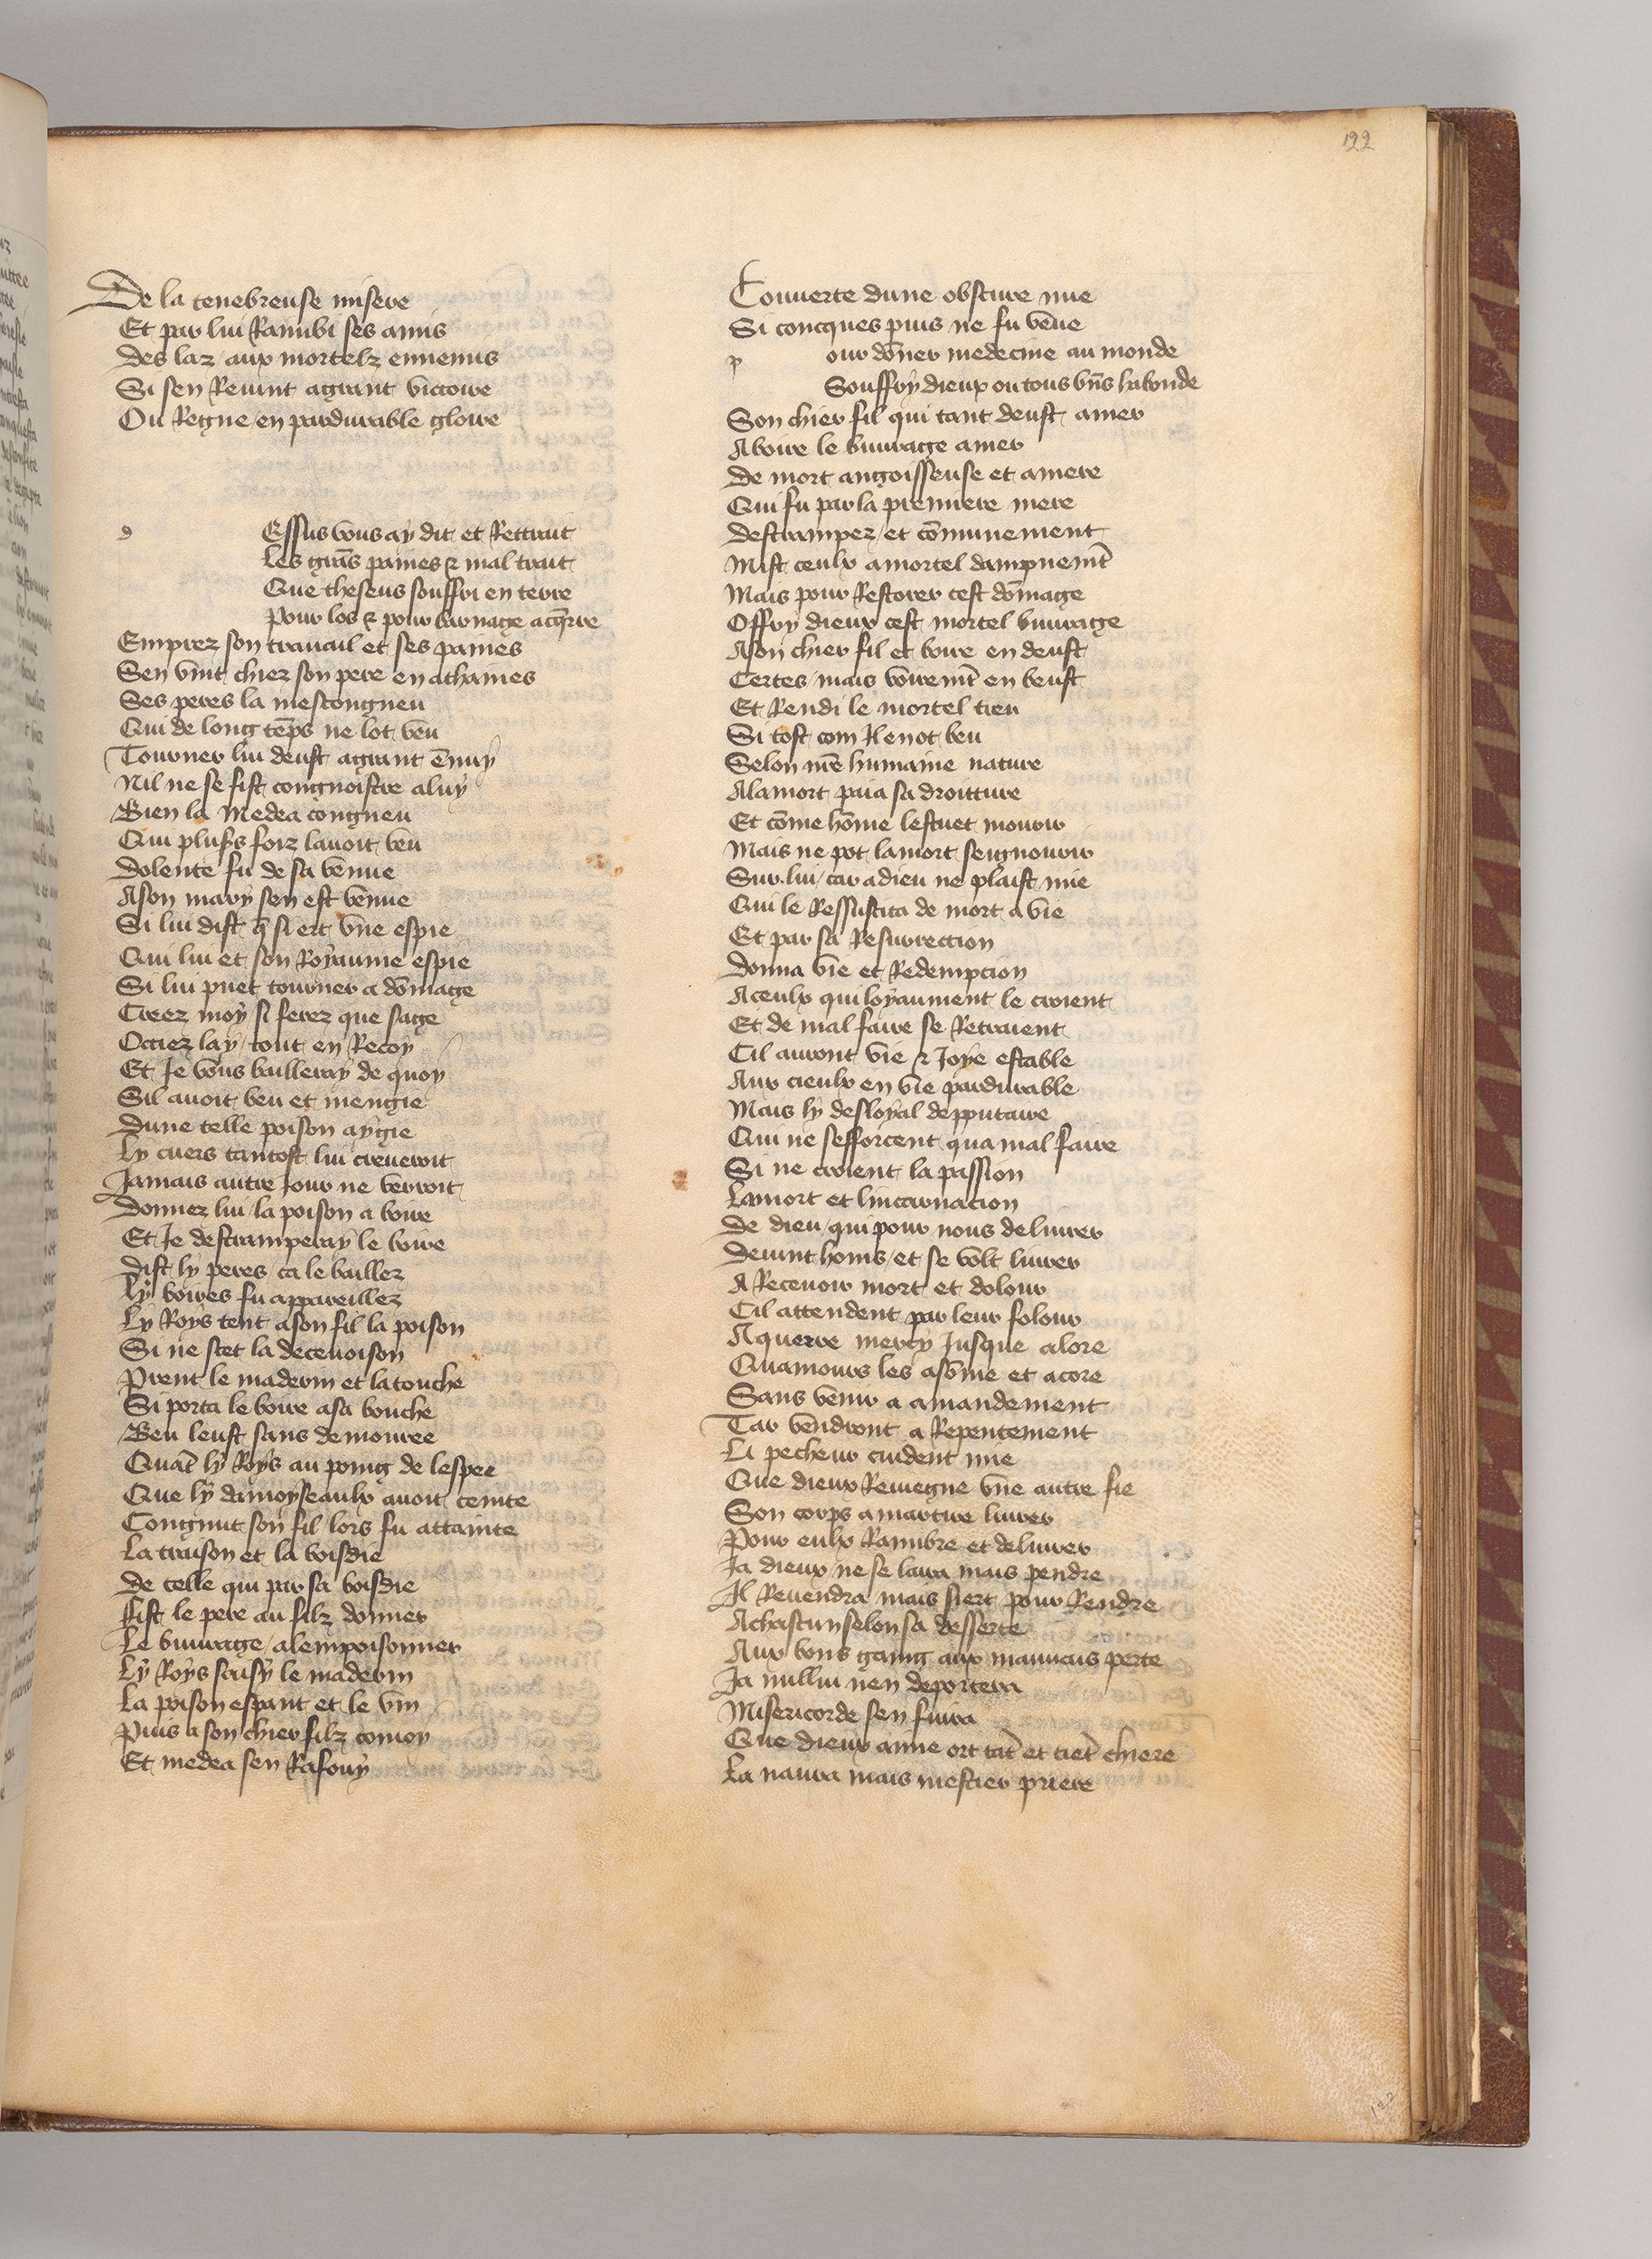 122
De la tenebreuse misere
Et par lui Raimbi ses amis
Des laz aux mortelz ennemis
Si sen Revint agrant victoire
Ou Regne en pardurable gloire
d Essus vous ay dit et Rettrait
Les grās paines & mal trait
Que theseus souffri en terre
Pour los & pour barnage acq̄rre
Emprez son travail et ses paines
Sen vint chiez son pere en athaines
Ses peres la mescongneu
Qui de long tēps ne lot veu
Tourner lui deust agrant ēnuy
Nil ne se fist congnoistre a luy
Bien la Medea congneu
Qui plus's foiz lavoit veu
Dolente fu de sa venue
Ason mary sen est venue
Si lui dist q̄ si ert vne espie
Qui lui et son Royaume espie
Si lui puet tourner a dōmage
Creez moy si ferez que sage
Occiez lay tout en Recoy
Et Je vous bailleray de quoy
Sil avoit beu et mengie
Dune telle poison aygie
Ly cuers tantost lui creveroit
Jamais autre Jour ne verroit
Donnez lui la poison a boire
Et Je destramperay le boire
Dist ly peres ca le baillez
Ly boires fu appareillez
Ly Roys tent ason fil la poison
Si ne scet la decevoison
Prent le maderin et la touche
Si porta le boire asa bouche
Beu leust sans demouree
Quāt ly Roys au poing de lespee
Que ly damoyseaulx avoit ceinte
Congnut son fil lors fu attainte
La traison et la voisdie
De celle qui par sa boisdie
Fist le pere au filz donner
Le buvrage alempoisonner
Ly Roys saisy le maderin
La poison espant et le vin
Puis a son chier filz conioy
Et medea sen Rafouy
Couverte dune obscure nue
Si concques puis ne fu veue
p our dōner medecine au monde
Souffry dieux ou tous bn̄s habonde
Son chier fil qui tant deust amer
Aboire le buvrage amer
De mort angoisseuse et amere
Qui fu par la premiere mere
Destrampez et cōmunement
Mist ceulx amortel dampnemēt
Mais pour Restorer cest dōmage
Offry dieux cest mortel buvrage
Ason chier fil et boire en deust
Certes mais voiremēt en beust
Et Rendi le mortel treu
Si tost com Il en ot beu
Selon nr̄e humaine nature
Alamort paia sa droitture
Et cōme hōme lestuet mourir
Mais ne pot lamort seignourir
Sur lui car a dieu ne plaist mie
Qui le Ressuscita de mort a vie
Et par sa Resurrection
Donna vie et Redempcion
Aceulx qui loyaument le croient
Et de mal faire se Retraient
Cil auront vie & Joye estable
Aux cieulx en vie pardurable
Mais ly desloyal depputaire
Qui ne sefforcent qua mal faire
Si ne croient la passion
Lamort et lincarnacion
De dieu qui pour nous delivrer
Devint homs et se volt livrer
A Recevoir mort et dolour
Cil attendent par leur folour
Aquerre mercy Jusque alore
Quamours les asōme et acore
Sans venir a amandement
Tar vendront a Repentement
Li pecheur cuident mie
Que dieux Reviegne vne autre fie
Son corps a martire livrer
Pour eulx Raimbre et delivrer
Ja dieux ne se laira mais pendre
Il Revendra mais siert pour Rendre
Achascun selon sa desserte
Aux bons gaing aux mauvais perte
Ja nullui nen deportera
Misericorde sen fuira
Que dieux aime ort tāt et tiēt chiere
La naura mais mestier priere
122